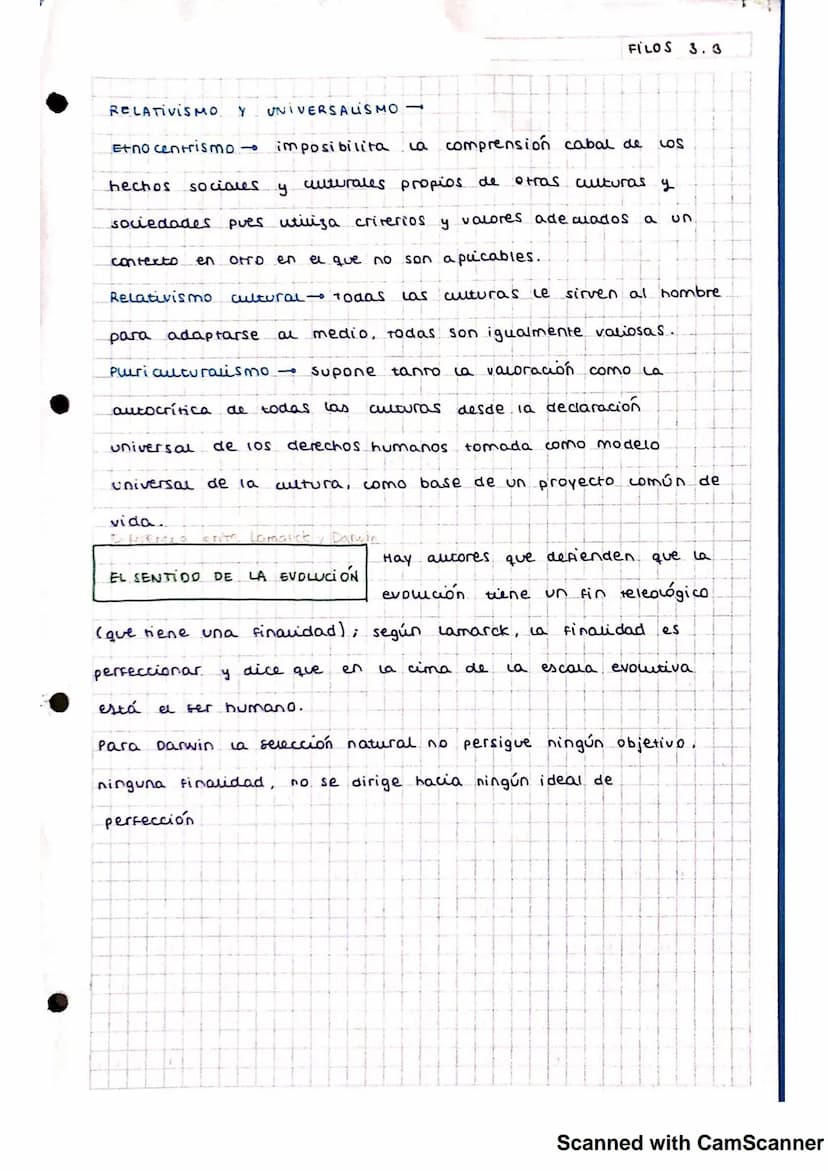 FILOS 3.3
RELATIVISMO Y UNIVERSALISMO →
Etnocentrismo → imposibilita la comprensión cabal de los
hechos sociales y culturales propios de otras culturas y
sociedades pues utiliza criterios y valores adecuados a un
contexto en otro en el que no son aplicables.
Relativismo cultural → Todas las culturas le sirven al hombre
para adaptarse al medio, todas son igualmente valiosas.
Pluriculturalismo → supone tanto la valoración como la
autocrítica de todas las culturas desde la declaración
universal de los derechos humanos tomada como modelo
universal de la cultura, como base de un proyecto común de
vida.
entre Lamarck y Darwin
EL SENTIDO DE LA EVOLUCIÓN
Hay autores que defienden que la
evolución tiene un fin teleológico
(que tiene una finalidad); según Lamarck, la finalidad es
perfeccionar y dice que en la cima de la escala evolutiva
está el ser humano.
Para Darwin la selección natural no persigue ningún objetivo,
ninguna finalidad, no se dirige hacia ningún ideal de
perfección
Scanned with CamScanner